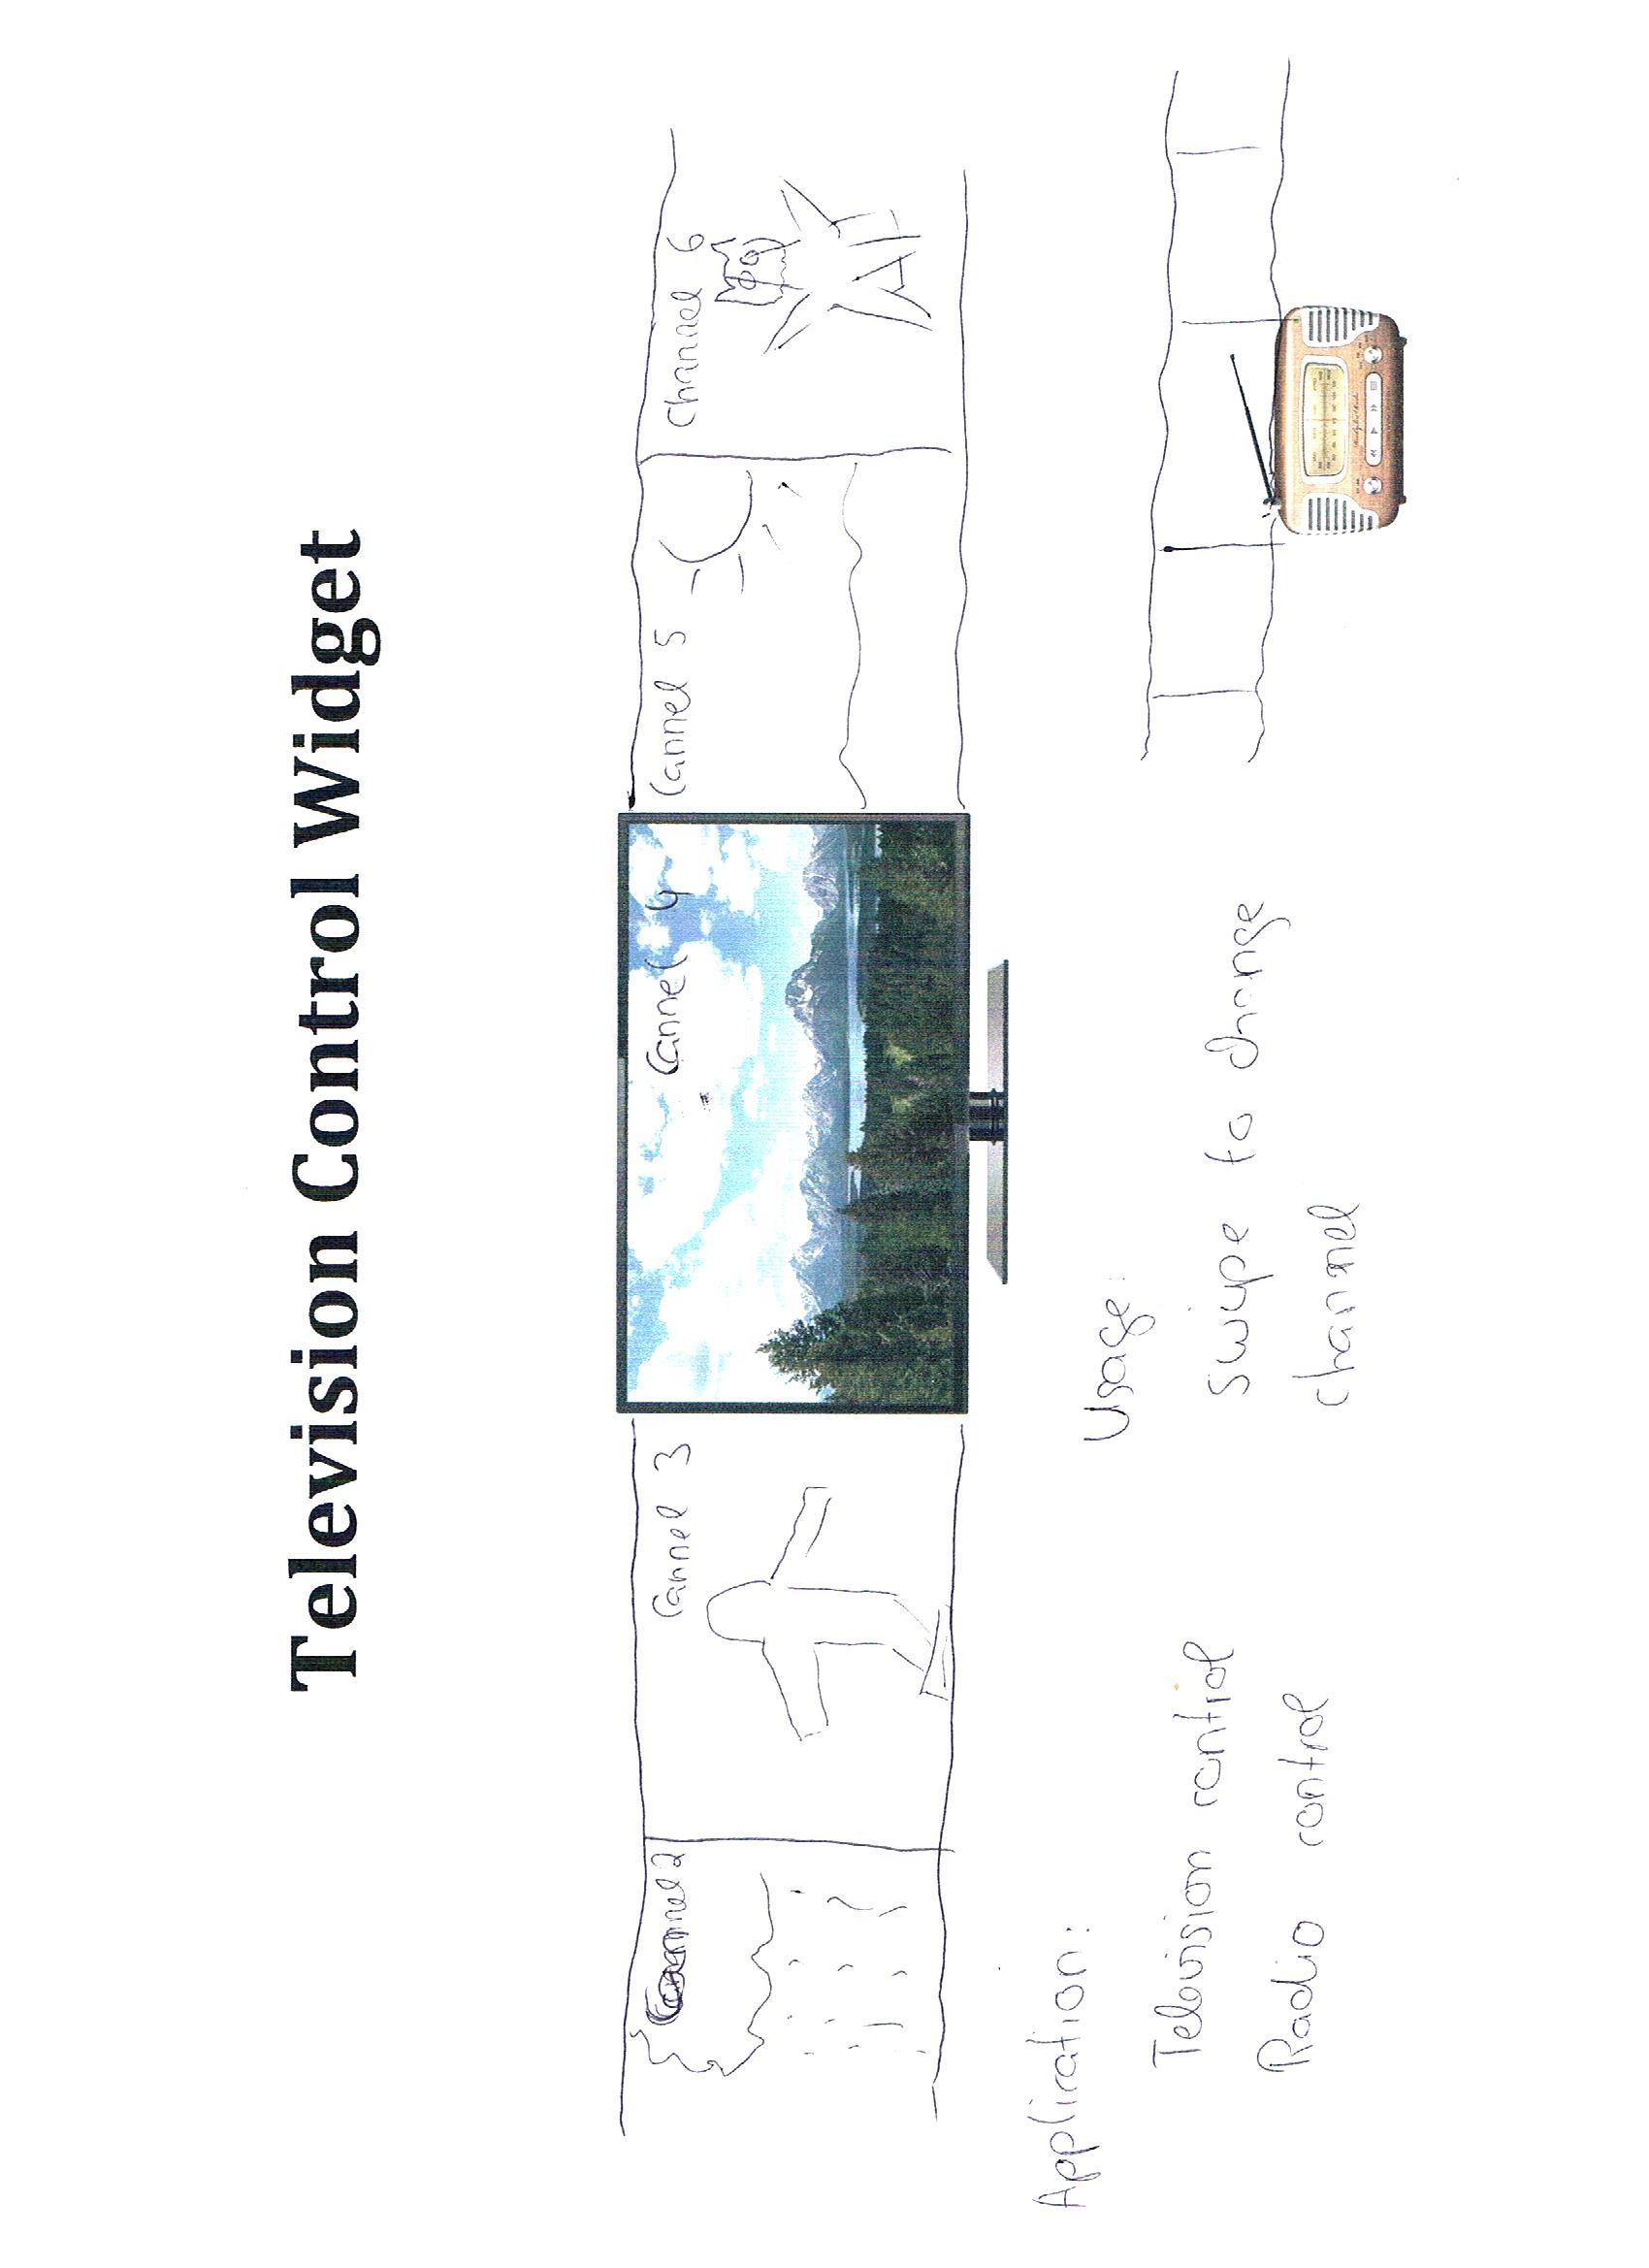 Television Control Widget
Cannel 2
Cannel 3
Cannel 4
Cannel 5
Channel 6
Application:
Television control
Radio control
Usage:
swipe to change
channel